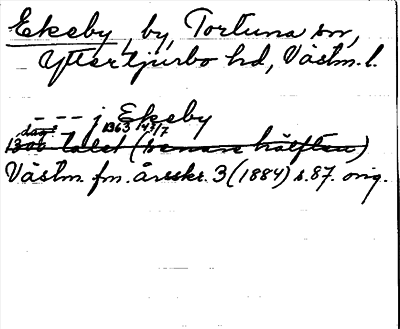 Ekeby, by, Tortuna sn,
Yttertjurbo hd, Västm. l.
- - - j Ekeby
1363 13/7
1300-talet (senare hälften)
Västm. fm. årsskr. 3 (1884) s. 87. orig.